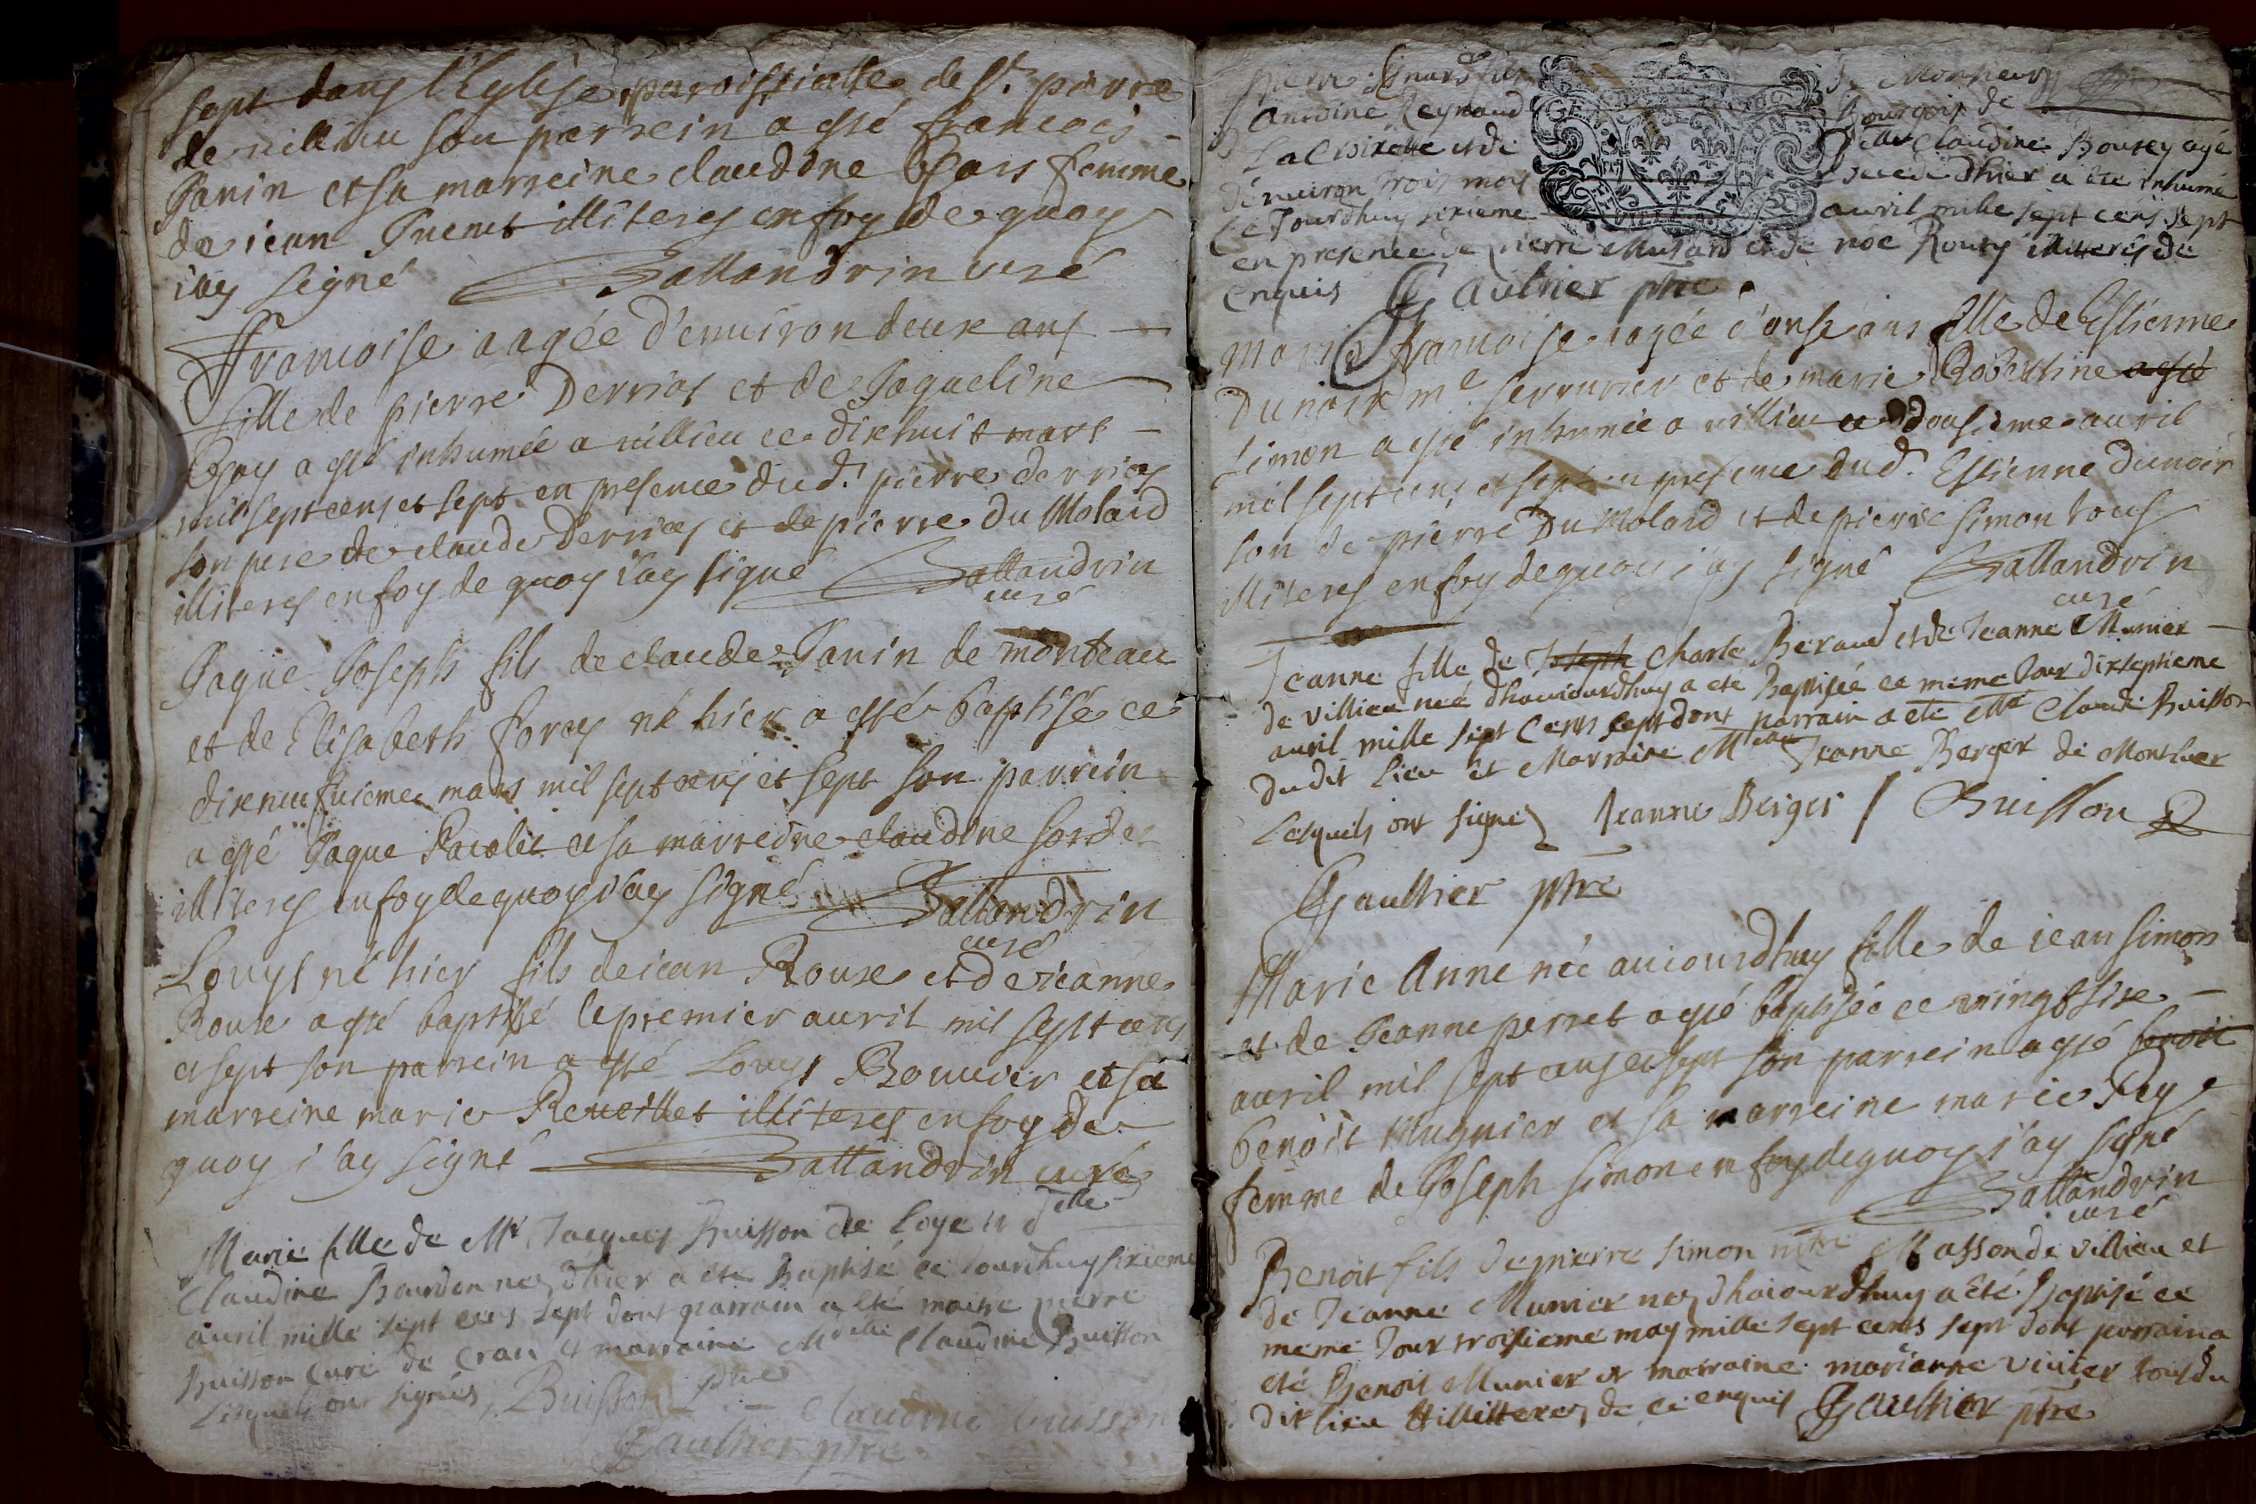 sept dans l'Eglise paroissialle de St. pierre
de villieu son parrein a esté francois
Janin et sa marreine claudine Pais femme
de iean illiteres en foy de quoy
i'ay signé Ballandrin curé
Francoise aagée d'enuiron deux ans
fille de pierre Derrias et de Jaqueline
Guy a esté inhumée a villieu ce dixhuit mars
mil sept cens et sept en presence dud. pierre derrias
son pere de claude Derrias et de pierre Du Molard
illiteres en foy de quoy i'ay signé Ballandrin
curé
Jaque Joseph fils de claude Janin de monteau
et de Elisabeth forey né hier a esté baptisé ce
dixneufuieme mars mil sept cens et sept son parrein
a esté Jaque Pacalie et sa marreine claudine sorde
illiteres en foy de quoy i'ay signé Ballandrin
curé
Louys né hier fils de iean Roux et de ieanne
Roux a esté baptisé le premier auril mil sept cens
et sept son parrein a esté Louys Bouuier et sa
marreine marie Reueillet illiteres en foy de
quoy j'ay signé Ballandrin curé
Marie fille de Mr Jacques Buisson de Loye et delle
Claudine Bourdon nez d'hier a été Baptisé ce iourdhuy sixieme
auril mille sept cens sept dont parrain a eté maitre pierre
Buisson Curé de Cran et marraine Mdelle Claudine Buisson
Lesquels ont signés, Buisson ptre Claudine buisson
Gaulthier ptre
pierre fils de Monsieur
Antoine Reynaud Bourgois de
La Croisette et de Delle Claudine Boutey agé
d'enuiron trois mois decedé d'hier a été inhumé
Ce Jourdhuy sixieme auril mille sept cens sept
en presence de pierre Musard et de noé Rouey illiteres de
enquis Gaultier ptre
marie francoise aagée d'onse ans fille de Estienne
Dunoir me. serrurier et de marie Robertine a esté
simon a esté inhumée a villieu ce dousieme auril
mil sept cens et sept en presence dud. Estienne dunoir
son de pierre Du Molard et de pierre simon tous
illiteres en foy de quoy j'ay signé Ballandrin
curé
Jeanne fille de Joseph Charle Beraud et de Jeanne Munier
de villieu neé dhauiourdhuy a eté Baptisée ce meme Jour dixseptieme
auril mille sept Cens sept dont parrain a eté Mre Claude Buisson
dudit lieu et Marraine Jeanne Berger de Montluer
Lesquels ont signez Jeanne Berger / Buisson
Gaulthier ptre
Marie Anne née auiourdhuy fille de iean simon
et de Jeanne perret a esté baptisée ce vingt sixe
auril mil sept cens et sept son parrein a esté benoit
benoit Mugnier et sa marreine marie Pey
femme de Joseph simon en foy de quoy j'ay signé
Ballandrin
curé
Benoit fils de pierre simon mtre Masson de villieu et
de Jeanne Munier nez dhaiourdhuy a été Baptisé ce
meme Jour troisieme may mille sept cens sept dont parrain a
eté Benoit Munier et marraine marianne viuier tous du
dit lieu et illitteres de ce enquis Gaulthier ptre